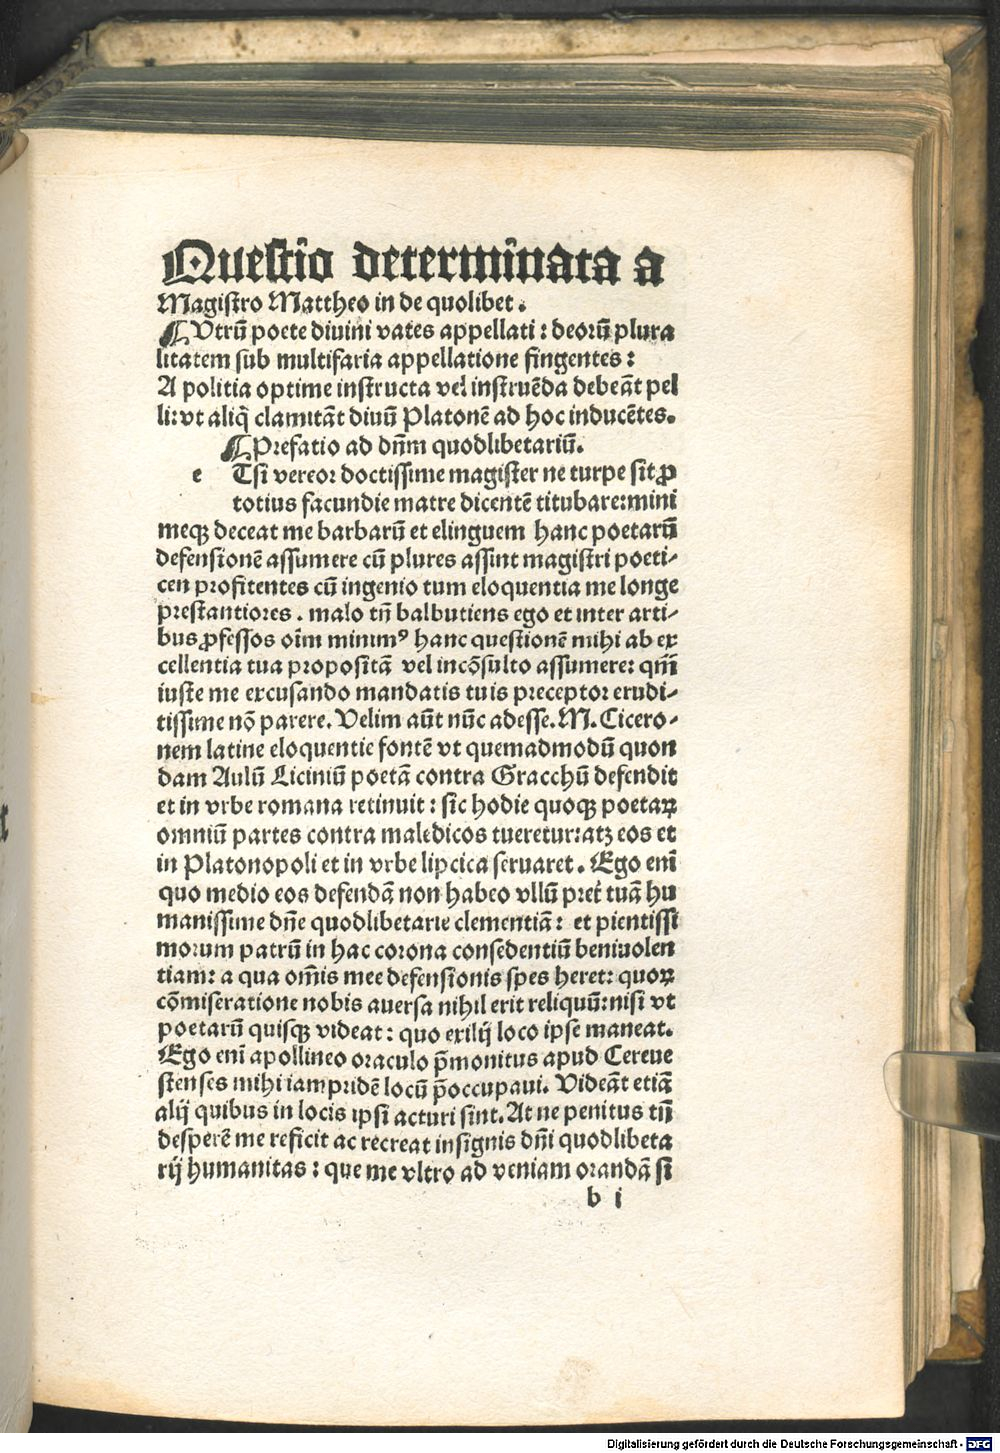 Questio determinata a
Magistro Mattheo in de quolibet.
¶ Vtrū poete diuini vates appellati: deorū plura
litatem sub multifaria appellatione fingentes:
A politia optime instructa vel instruēda debeāt pel
li: vt aliq̄ clamitāt diuū Platonē ad hoc inducētes.
¶ Prefatio ad dn̄m quodlibetariū.
e Tsi vereor doctissime magister ne turpe sit ꝓ
totius facundie matre dicentē titubare: mini
meqꝫ deceat me barbarū et elinguem hanc poetarū
defensionē assumere cū plures assint magistri poeti-
cen profitentes cū ingenio tum eloquentia me longe
prestantiores. malo tn̄ balbutiens ego et inter arti-
bus ꝓfessos oīm minimꝰ hanc questionē mihi ab ex
cellentia tua propositā vel incōsulto assumere: qm̄
iuste me excusando mandatis tuis preceptor erudi-
tissime nō parere. Velim aūt nūc adesse. M. Cicero-
nem latine eloquentie fontē vt quemadmodū quon
dam Aulū Liciniū poetā contra Gracchū defendit
et in vrbe romana retinuit: sic hodie quoqꝫ poetaꝝ
omniū partes contra maledicos tueretur: atqꝫ eos et
in Platonopoli et in vrbe lipcica seruaret. Ego enī
quo medio eos defendā non habeo vllū pret̄ tuā hu
manissime dn̄e quodlibetarie clementiā: et pientissi
morum patrū in hac corona consedentiū beniuolen
tiam: a qua om̄is mee defensionis spes heret: quoꝝ
cōmiseratione nobis auersa nihil erit reliquū: nisi vt
poetarū quisqꝫ videat: quo exilij loco ipse maneat.
Ego enī apollineo oraculo p̄monitus apud Cereue
stenses mihi iampridē locū p̄occupaui. Videāt etiā
alij quibus in locis ipsi acturi sint. At ne penitus tn̄
desperē me reficit ac recreat insignis dn̄i quodlibeta
rij humanitas: que me vltro ad veniam orandā si
b i
Digitalisierung gefördert durch die Deutsche Forschungsgemeinschaft - DFG